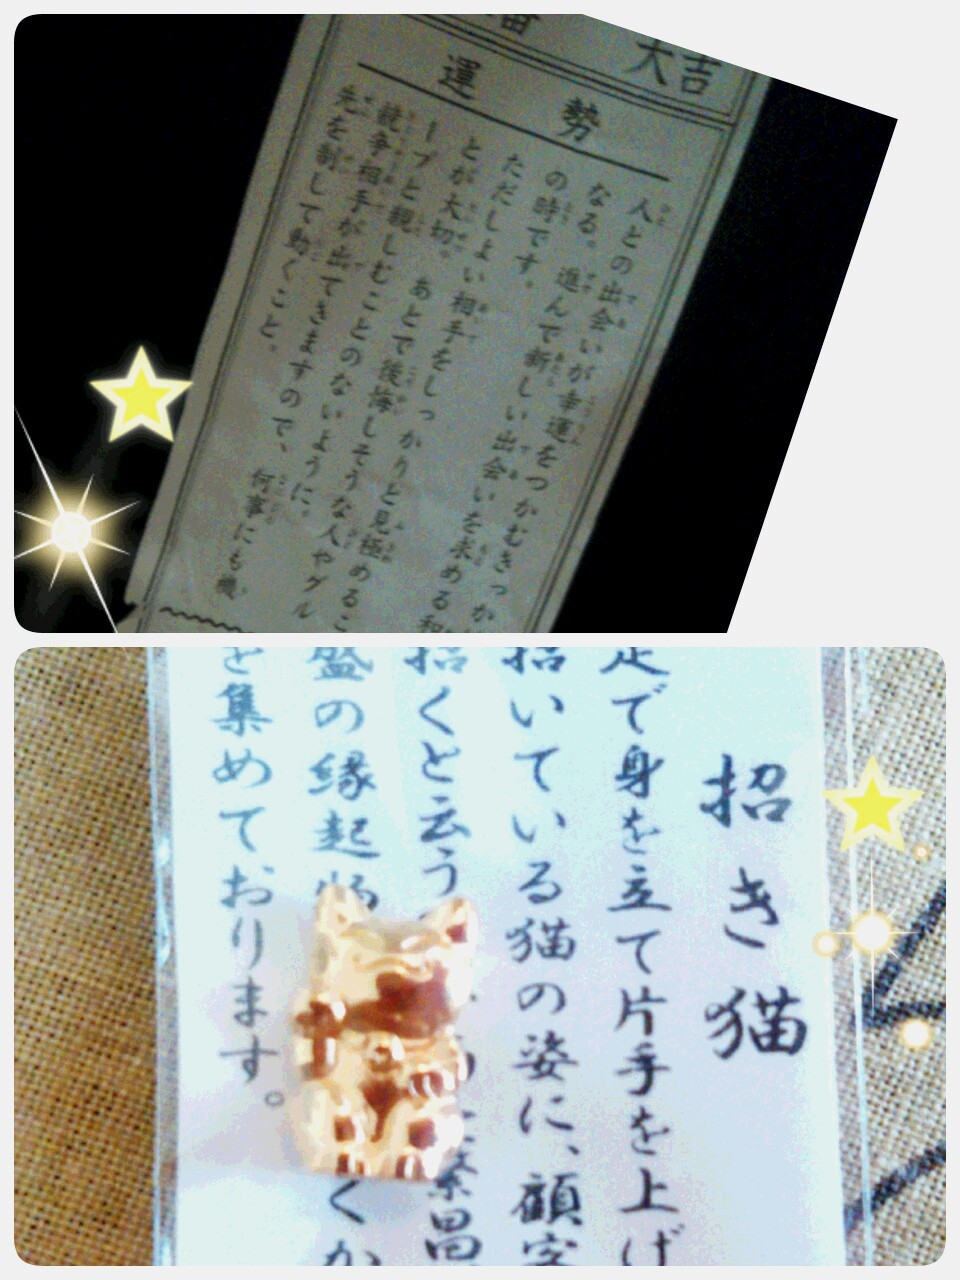 大吉
運勢
人との出会いが幸運をつかむきっか
なる。進んで新しい出会いを求める
の時です。
ただしよい相手をしっかりと見極めるこ
とが大切。あとで後悔しそうな人やグル
ープと親しむことのないように。
競争相手が出てきますので、何事にも機
先を制して動くこと。
招き猫
足で身を立て片手を上げ
招いている猫の姿に、顧客
招くと云う
繁昌
盛の縁起
くか
を集めております。